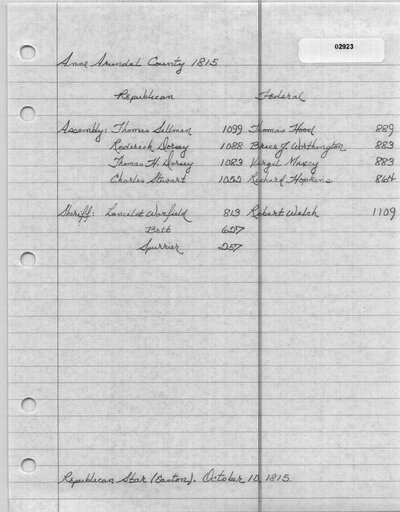 02923
Anne Arundel County 1815
Republican Federal
Assembly: Thomas Sellman 1099 Thomas Hood 889
Roderick Dorsey 1088 Brice J. Worthington 883
Thomas H. Dorsey 1083 Virgil Maxcy 883
Charles Stewart 1053 Richard Hopkins 864
Sheriff: Lancelot Warfield 813 Robert Welch 1109
Belt 627
Spurrier 257
Republican Star (Easton). October 10, 1815.